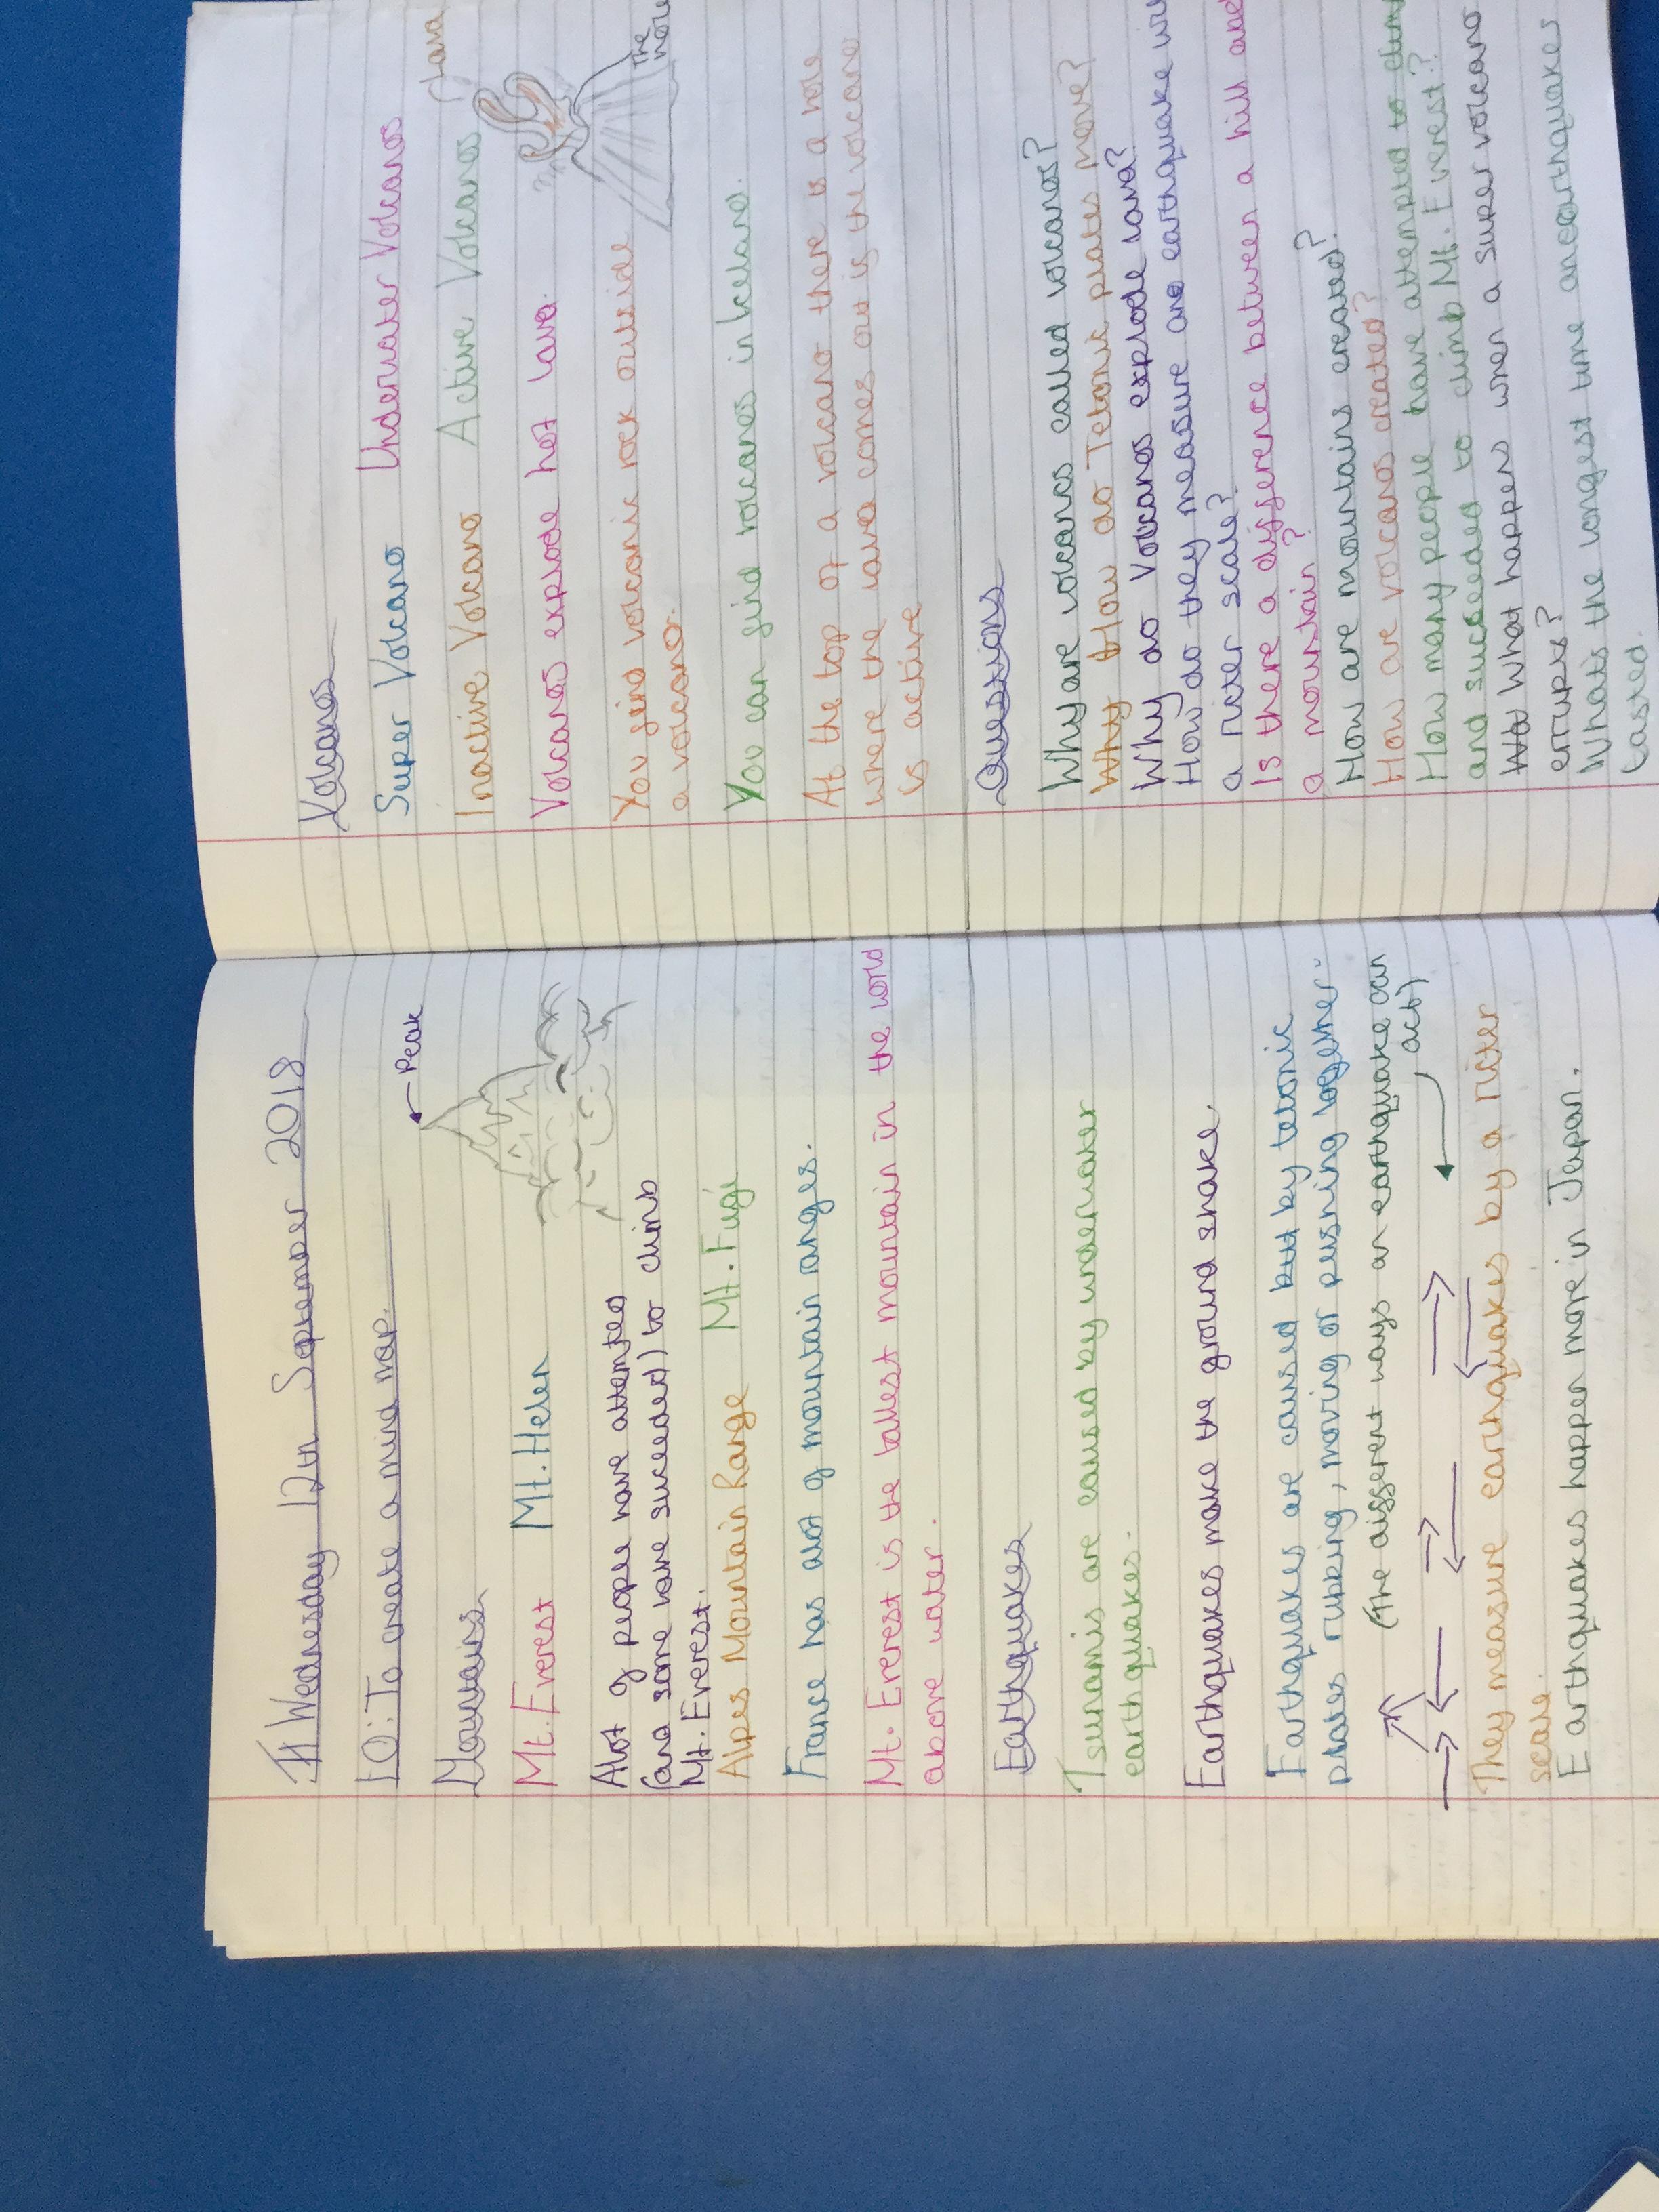 Wednesday 12th September 2018
LO: To create a mind map.
Peak
Mountains
Mt. Everest Mt. Helen
Alot of people have attemted
(and some have suceeded) to climb
Mt. Everest.
Alpes Mountain Range Mt. Fugi
France has alot of mountain ranges.
Mt. Everest is the tallest mountain in the world
above water.
Earthquakes
Tsunamis are caused by underwater
earthquakes.
Earthquakes make the ground shake.
Earthquakes are caused but by tetonic
plates rubbing, moving or pushing together.
(The different ways an earthquake can
act)
They measure earthquakes by a ricter
scale.
Earthquakes happen more in Japan.
Volcanos
Super Volcano Underwater Volcanos
Lava
Inactive Volcano Active Volcanos
Volcanos explode hot lava.
The
You find volcanic rock outside
a volcano.
You can find volcanoes in Iceland.
At the top of a volcano there is a hole
where the lava comes out is the volcano
is active
Questions
Why are volcanos called volcanos?
Why How do Tectonic plates move?
Why do Volcanos explode lava?
How do they measure and earthquake
a ricter scale?
Is there a difference between a hill and
a mountain?
How are mountains created?
How are volcanos created?
How many people have attempted to
and succeeded to climb Mt. Everest?
What happens when a super volcano
errupts?
Whats the longest time an earthquakes
lasted.